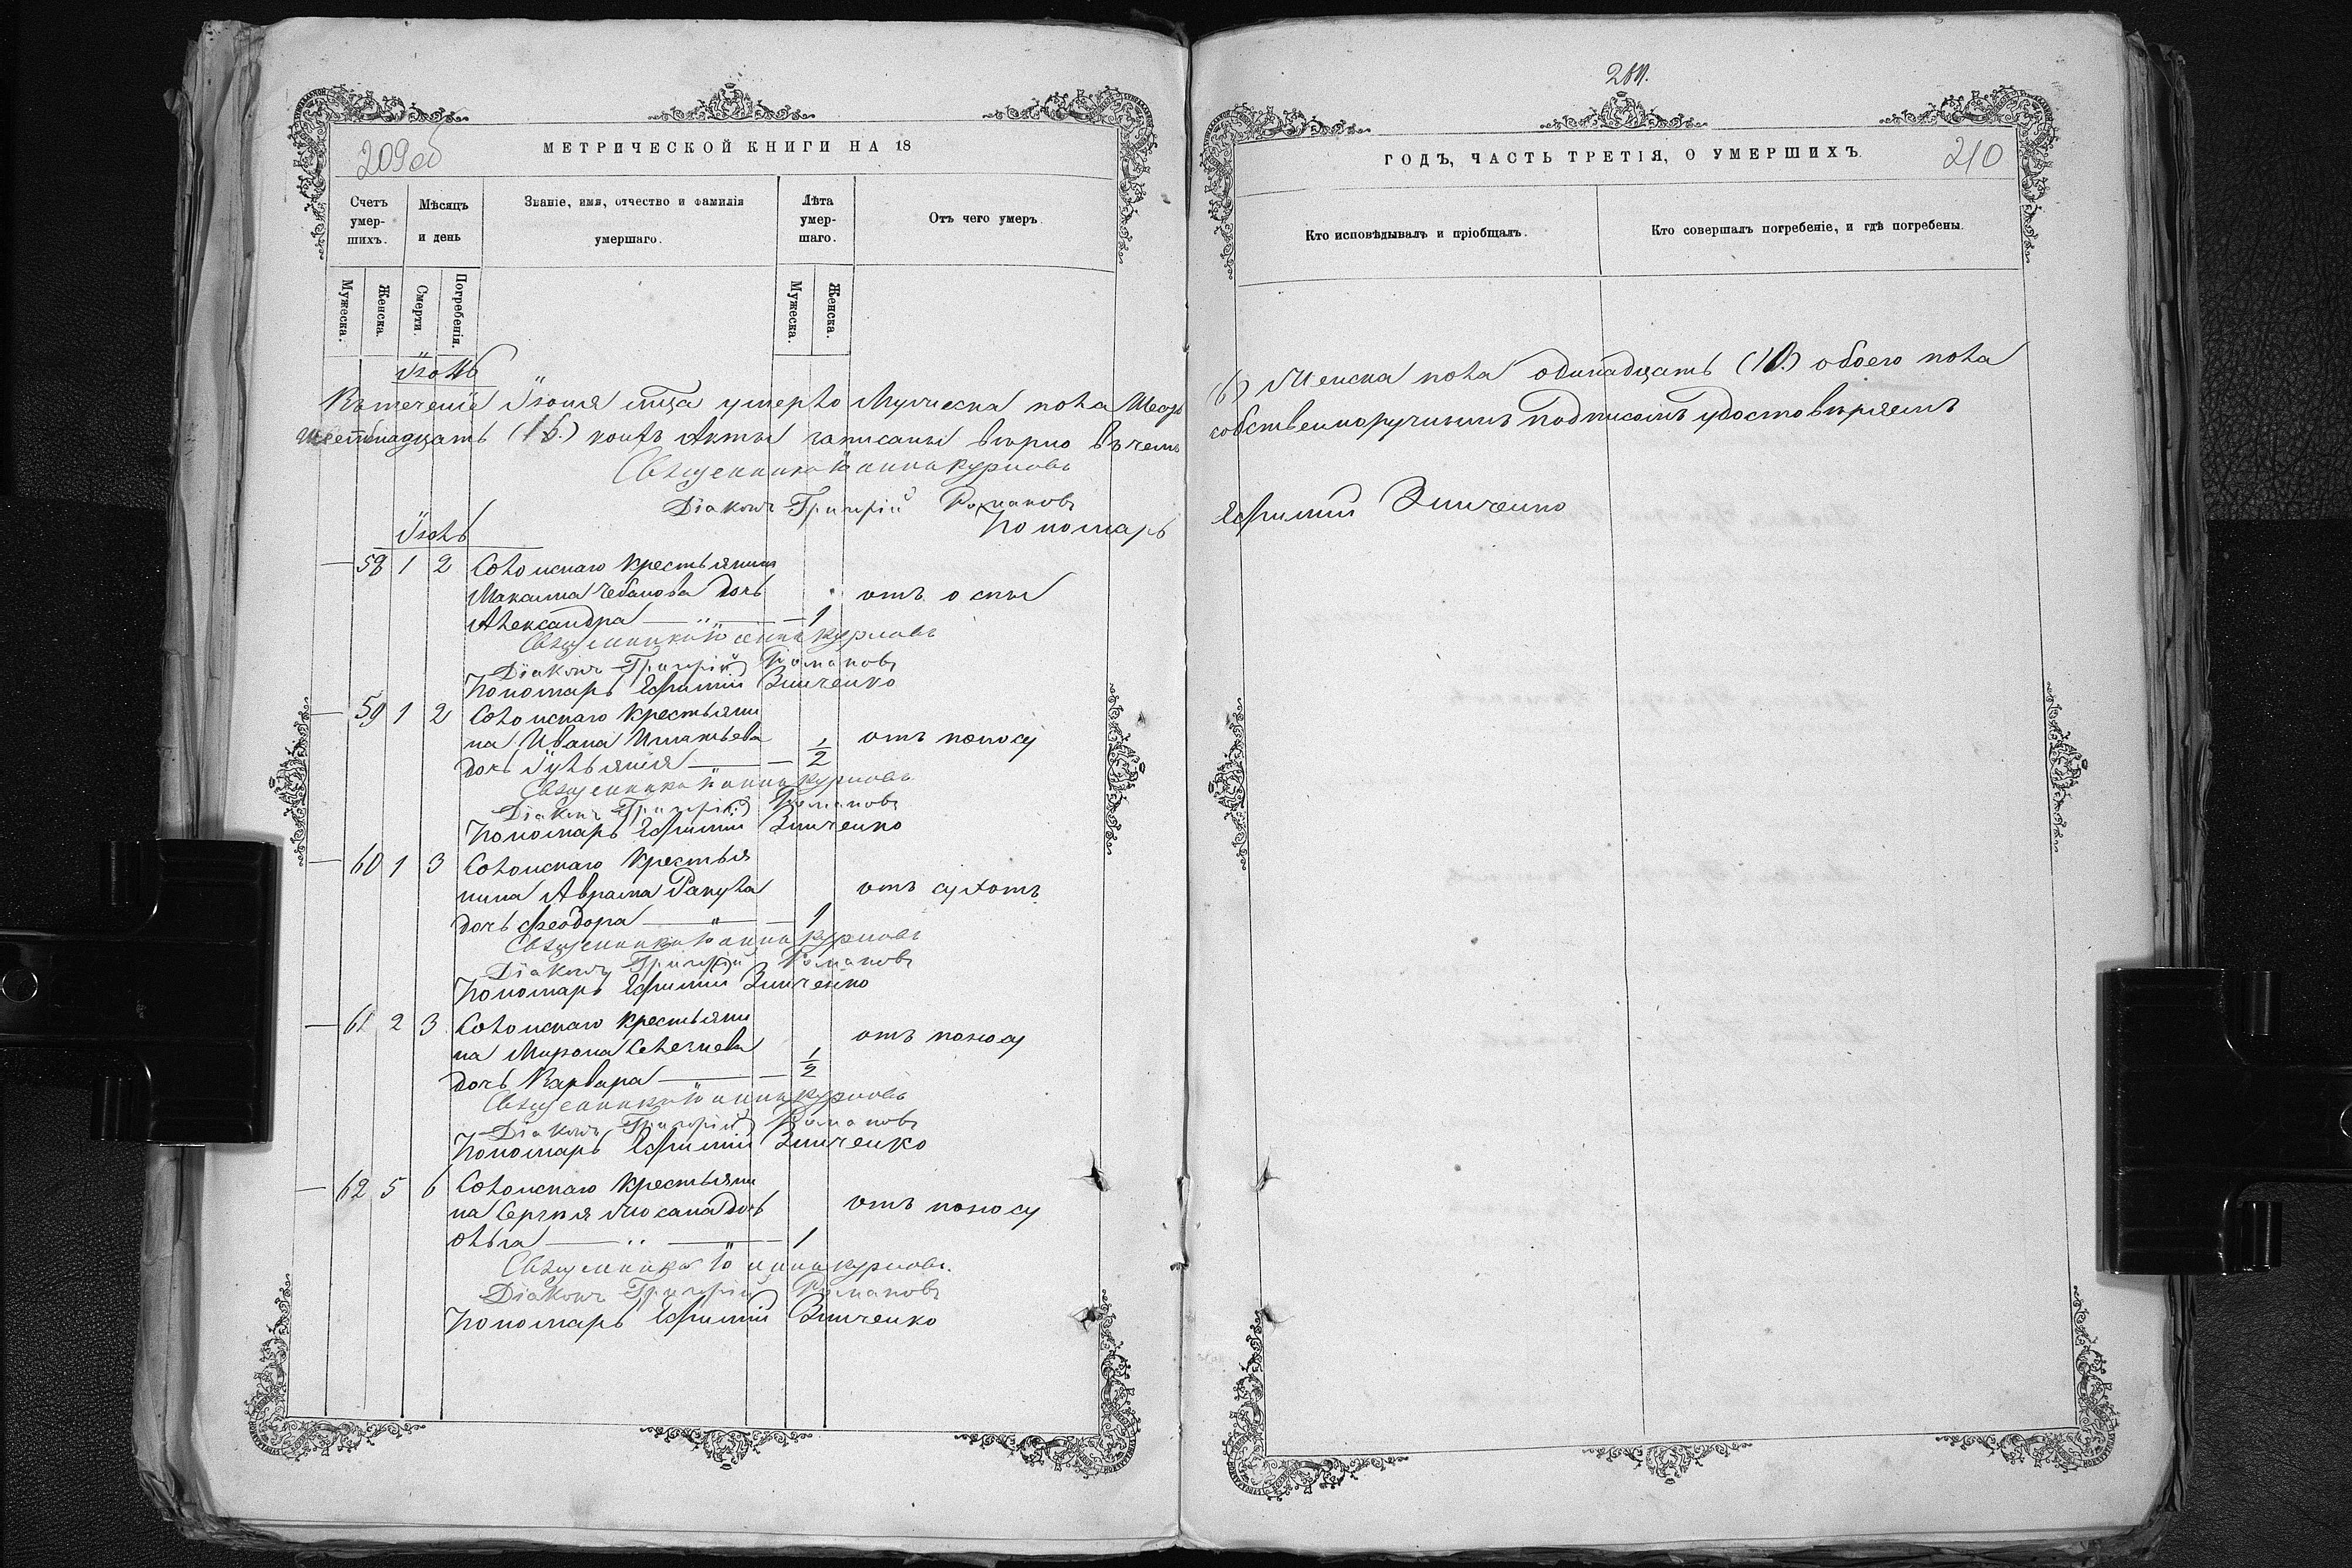 209об
МЕТРИЧЕСКОЙ КНИГИ НА 18
Счетъ умер-шихъ.
Мѣсяцъ и день
Званіе, имя, отчество и фамилія умершаго.
Лѣта умер-шаго.
Отъ чего умеръ.
Мужеска.
Женска.
Смерти.
Погребенія.
Мужеска.
Женска.
Іюнь
Въ теченіе Іюня мца умерло Мужеска пола
шестнадцать коихъ Акты записаны вѣрно въ чемъ
Священникъ Іоаннъ
Діаконъ Григорій Романовъ
Пономарь
Іюль
58 1 2 Солонскаго Крестьянина
Максима Чебанова дочь отъ оспы
Александра — " — 1
Священникъ Іоаннъ
Діаконъ Григорій Романовъ
Пономарь Ефимій Зинченко
59 1 2 Солонскаго Крестьяни
на Ивана Игнатьева 1/2 отъ поносу
дочь Іульянія —
Священникъ Іоаннъ
Діаконъ Григорій Романовъ
Пономарь Ефимій Зинченко
60 1 3 Солонскаго Крестья
нина Аврама Ракула отъ сухотъ
дочь Феодора — " — 1
Священникъ Іоаннъ
Діаконъ Григорій Романовъ
Пономарь Ефимій Зинченко
61 2 3 Солонскаго Крестьяни
на Мирона отъ поносу
дочь Варвара — 1/2
Священникъ Іоаннъ
Діаконъ Григорій Романовъ
Пономарь Ефимій Зинченко
62 5 6 Солонскаго Крестьяни
на Сергѣя дочь отъ поносу
Ольга — " — 1
Священникъ Іоаннъ
Діаконъ Григорій Романовъ
Пономарь Ефимій Зинченко
210
ГОДЪ, ЧАСТЬ ТРЕТІЯ, О УМЕРШИХЪ.
Кто исповѣдывалъ и пріобщалъ.
Кто совершалъ погребеніе, и гдѣ погребены.
(6) Женска пола одинадцать обоего пола
собственноручнымъ подписомъ удостовѣряемъ
Ефимій Зинченко